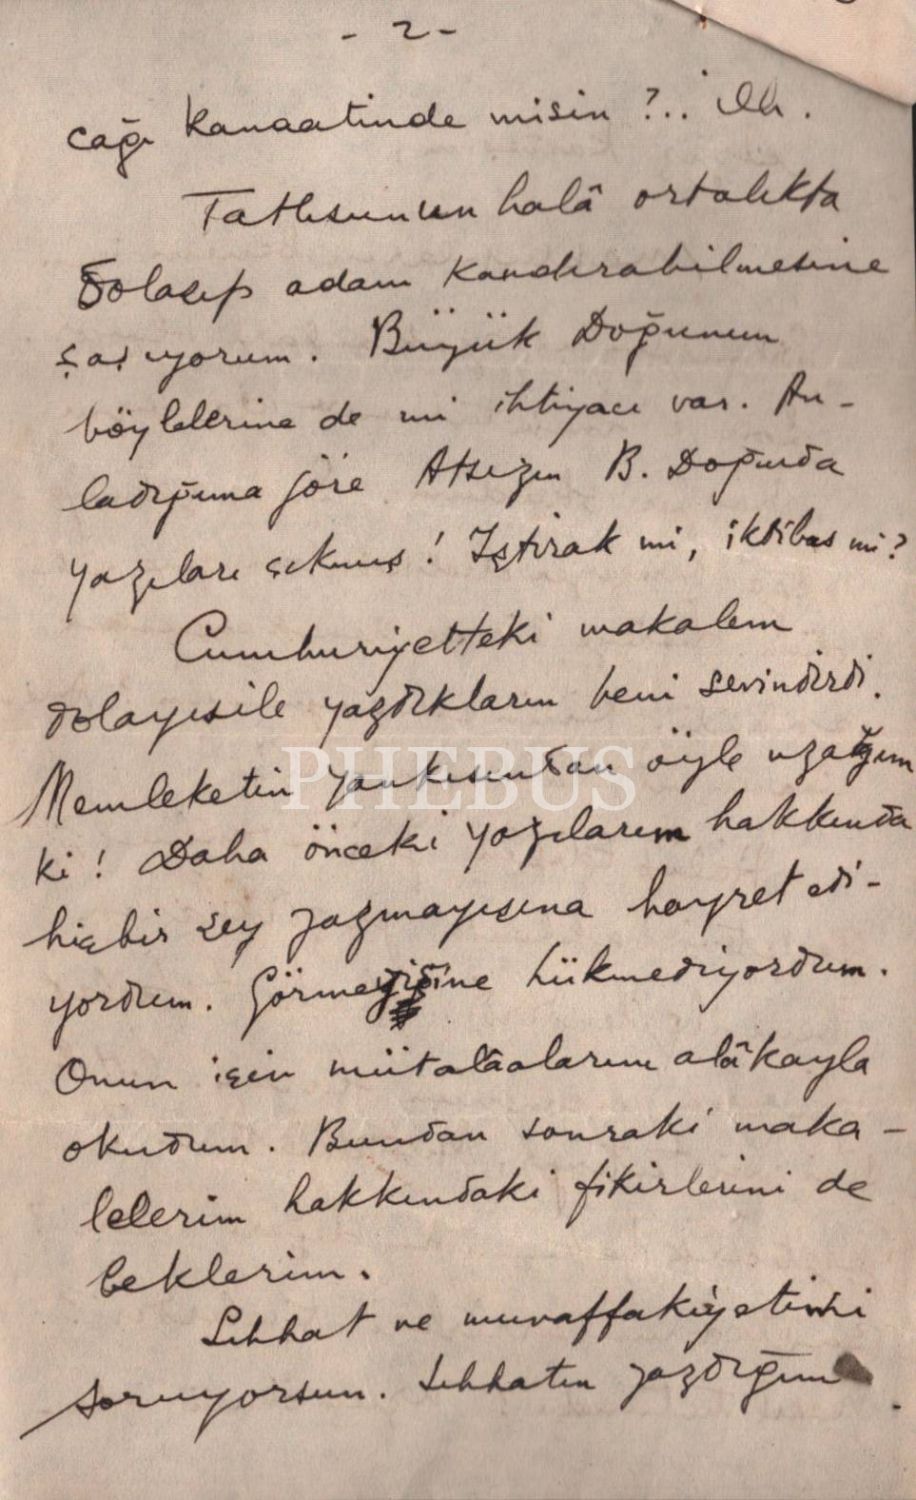 - 2 -
cağı kanaatinde misin ?.. ilh.
Tatlısunun halâ ortalıkta
dolaşıp adam kandırabilmesine
şaşıyorum. Büyük Doğunun
böylelerine de mi ihtiyacı var. An-
ladığıma göre Atsızın B. Doğuda
yazıları çıkmış! İştirak mi, iktibas mi?
Cumhuriyetteki makalem
dolayısile yazdıkların beni sevindirdi.
Memleketin yankısından öyle uzağım
ki! Daha önceki yazılarım hakkında
hiçbir şey yazmayışına hayret edi-
yordum. Görmediğine hükmediyordum.
Onun için mütalâalarını alâkayla
okudum. Bundan sonraki maka-
lelerim hakkındaki fikirlerini de
beklerim.
Sıhhat ve muvaffakiyetimi
soruyorsun. Sıhhatın yazdığım
PHEBUS